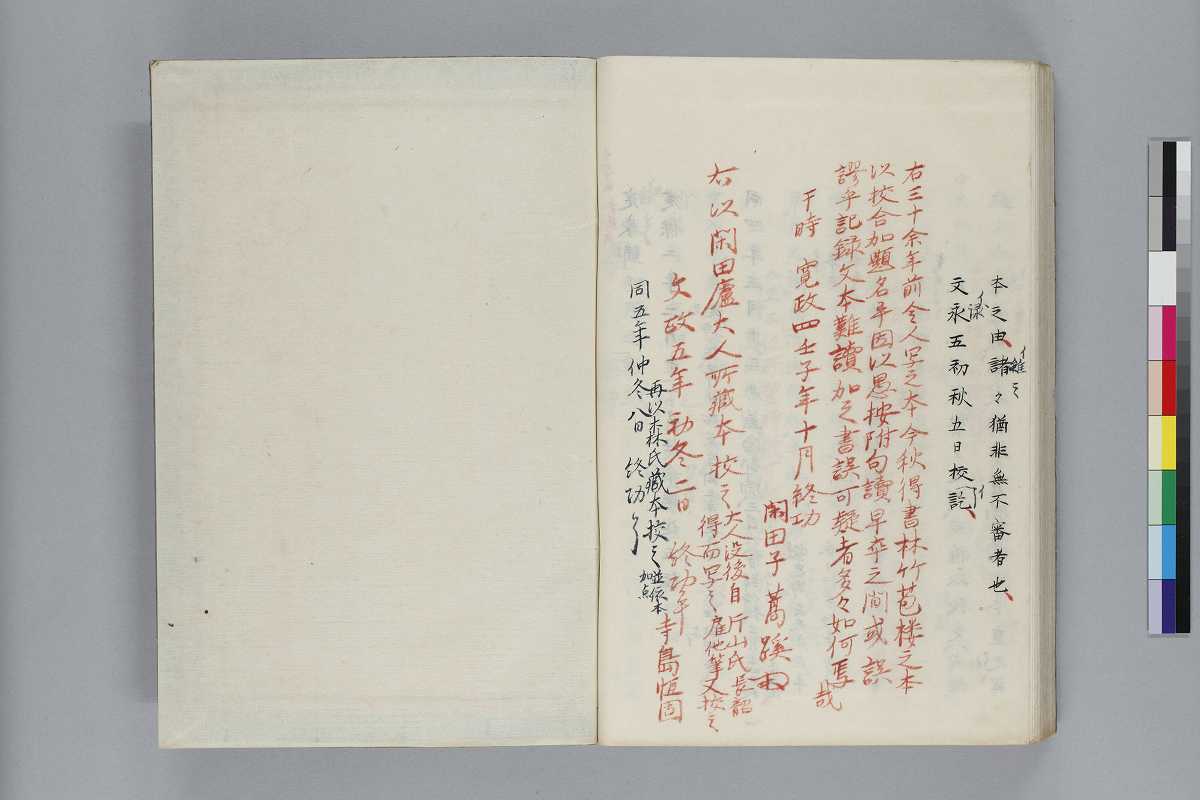 本之由諸々猶非無不審者也
イ雖之
文永五初秋五日校訖
イ録
イ
右三十余年前令人写之本今秋得書林竹苞楼之本
以校合加題名平因以愚按附句讀早卒之間或誤
謬乎記録文本難讀加之書誤可疑者多々如何焉哉
于時 寛政四壬子年十月終功
閑田子蒿蹊
右以閑田廬大人所蔵本校之大人没後自片山氏長韶
得而写之雇他筆又校之
文政五年初冬二日 終功
寺島恒固
再以森氏蔵本校之並依本加点
同五年仲冬八日 終功